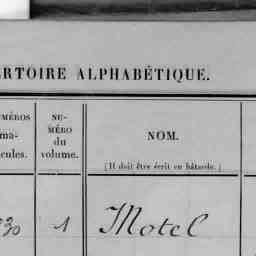 ERTOIRE ALPHABÉTIQUE.
UMÉROS
ma-
cules.
NU-
MÉRO
du
volume.
NOM.
(Il doit être écrit en bâtarde.)
30 1 Motel